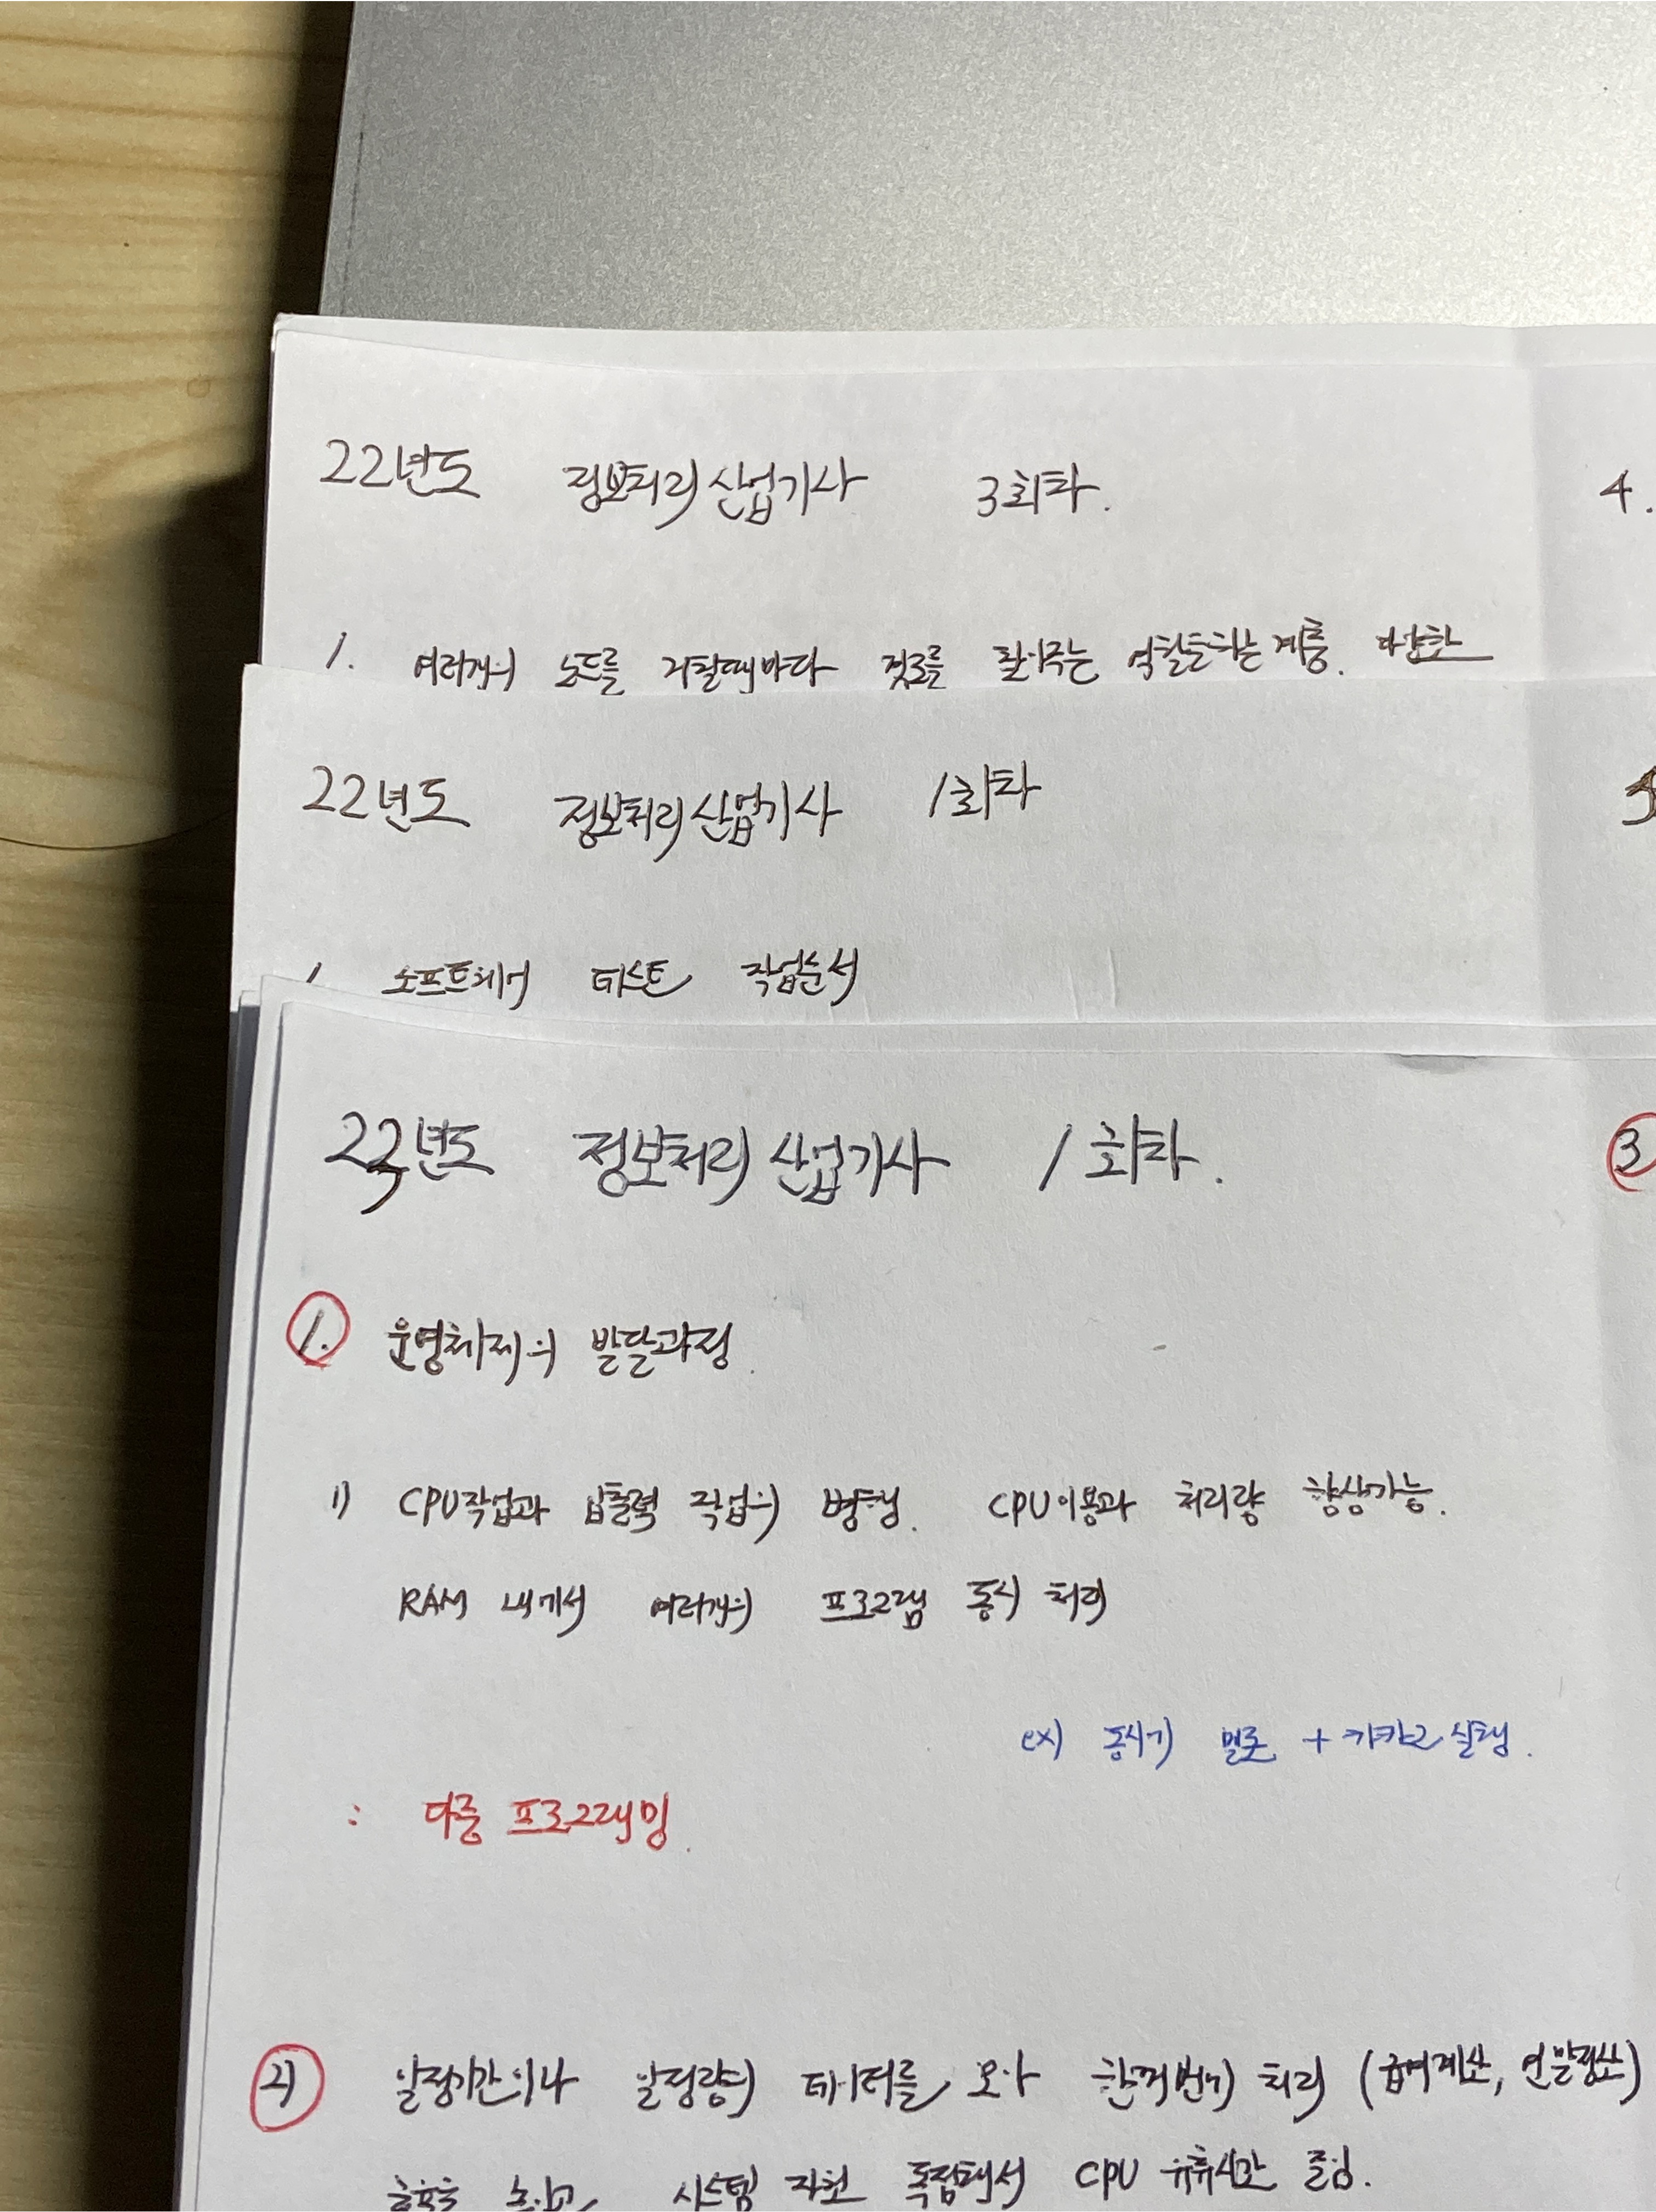 22년도 정보처리산업기사 3회차.
4.
1. 여러개의 노드를 거칠때마다 경로를 찾아주는 역할을하는 계층.
22년도 정보처리산업기사 1회차
1. 소프트웨어 테스트 작업순서
23년도 정보처리산업기사 1회차.
3
1. 운영체제의 발달과정.
1) CPU작업과 입출력 작업의 병행. CPU이용과 처리량 향상가능.
RAM 내에서 여러개의 프로그램 동시 처리
ex) 동시에 멜론 + 카카오 실행.
: 다중 프로그래밍.
2) 일정기간이나 일정량의 데이터를 모아 한꺼번에 처리 (급여계산, 연말정산)
효율을 높이고 시스템 자원 독점해서 CPU 유휴시간 줄임.